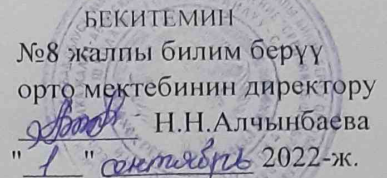 БЕКИТЕМИН
№8 жалпы билим берүү
орто мектебинин директору
Н.Н.Алчынбаева
"1" сентябрь 2022-ж.